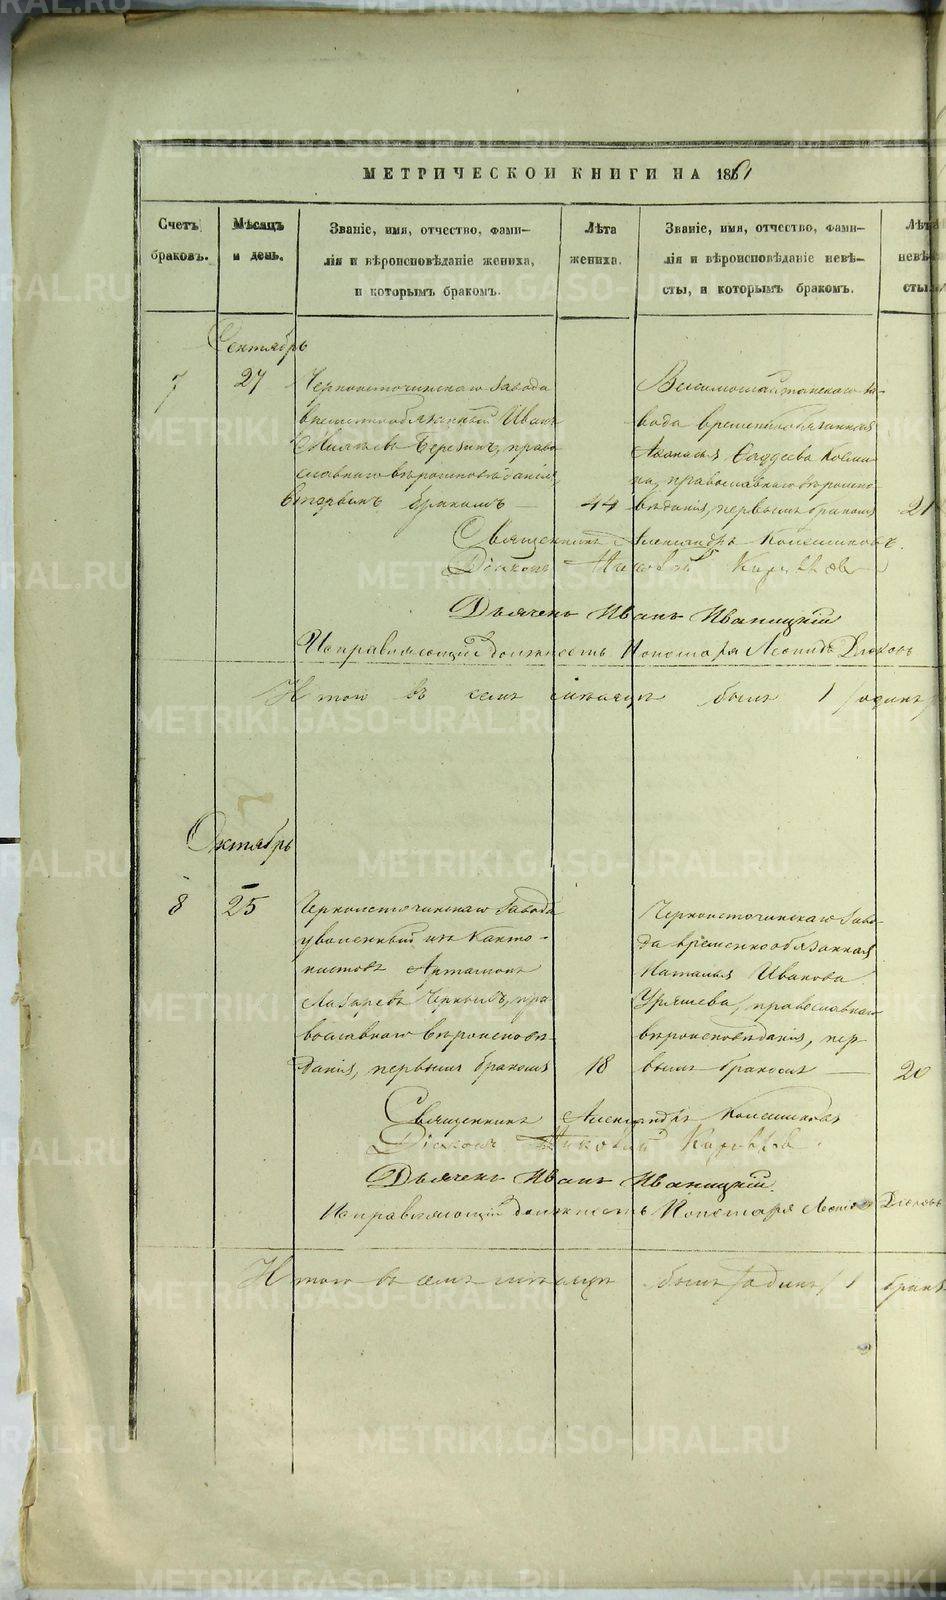 МЕТРИЧЕСКОЙ КНИГИ НА 1861
Счетъ браковъ.
Мѣсяцъ и день.
Званіе, имя, отчество, фами-
лія и вѣроисповѣданіе жениха,
и которымъ бракомъ.
Лѣта жениха.
Званіе, имя, отчество, фами-
лія и вѣроисповѣданіе невѣ-
сты, и которымъ бракомъ.
Лѣта
невѣ
сты
Сентябрь
7
27
Черноисточинскаго завода
временнообязанный Иванъ
Березинъ, право-
славнаго вѣроисповѣданія,
вторымъ бракомъ
44
Висимошайтанскаго за-
вода временнообязанная
Ѳаддеева Косми-
на, православнаго вѣроиспо-
вѣданія, первымъ бракомъ
21
Священникъ Александръ
Діаконъ
Дьячекъ Иванъ Иваницкій
Исправляющій должность Пономаря Леонидъ
Итого въ семъ мѣсяцѣ былъ 1 /одинъ/
Октябрь
8
25
Черноисточинскаго завода
уволенный изъ Канто-
нистовъ Артамонъ
Лазаревъ Черныхъ, пра
вославнаго вѣроисповѣ-
данія, первымъ бракомъ
18
Черноисточинскаго заво-
да временнообязанная
Наталья Иванова
православнаго
вѣроисповѣданія, пер
вымъ бракомъ
20
Священникъ Александръ
Діаконъ
Дьячекъ Иванъ Иваницкій
Исправляющій должность Пономаря
Итого въ семъ мѣсяцѣ былъ /одинъ/ 1 бракъ
METRIKI.GASO-URAL.RU